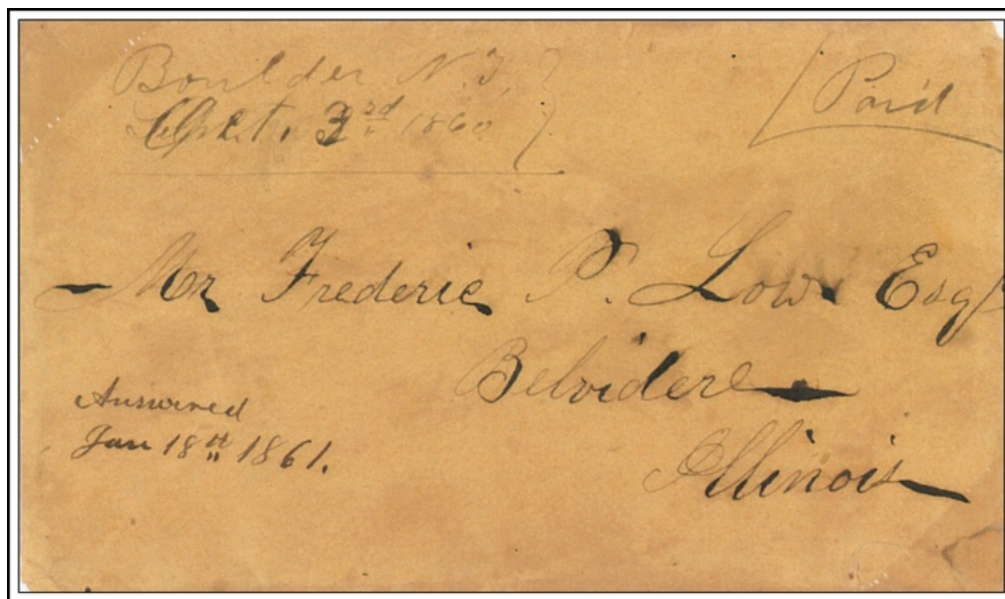 Boulder N.T,
3rd 1860
Paid
Mr Frederic P. Low Esq
Belvidere
Illinois
Answered
Jan 18th 1861.